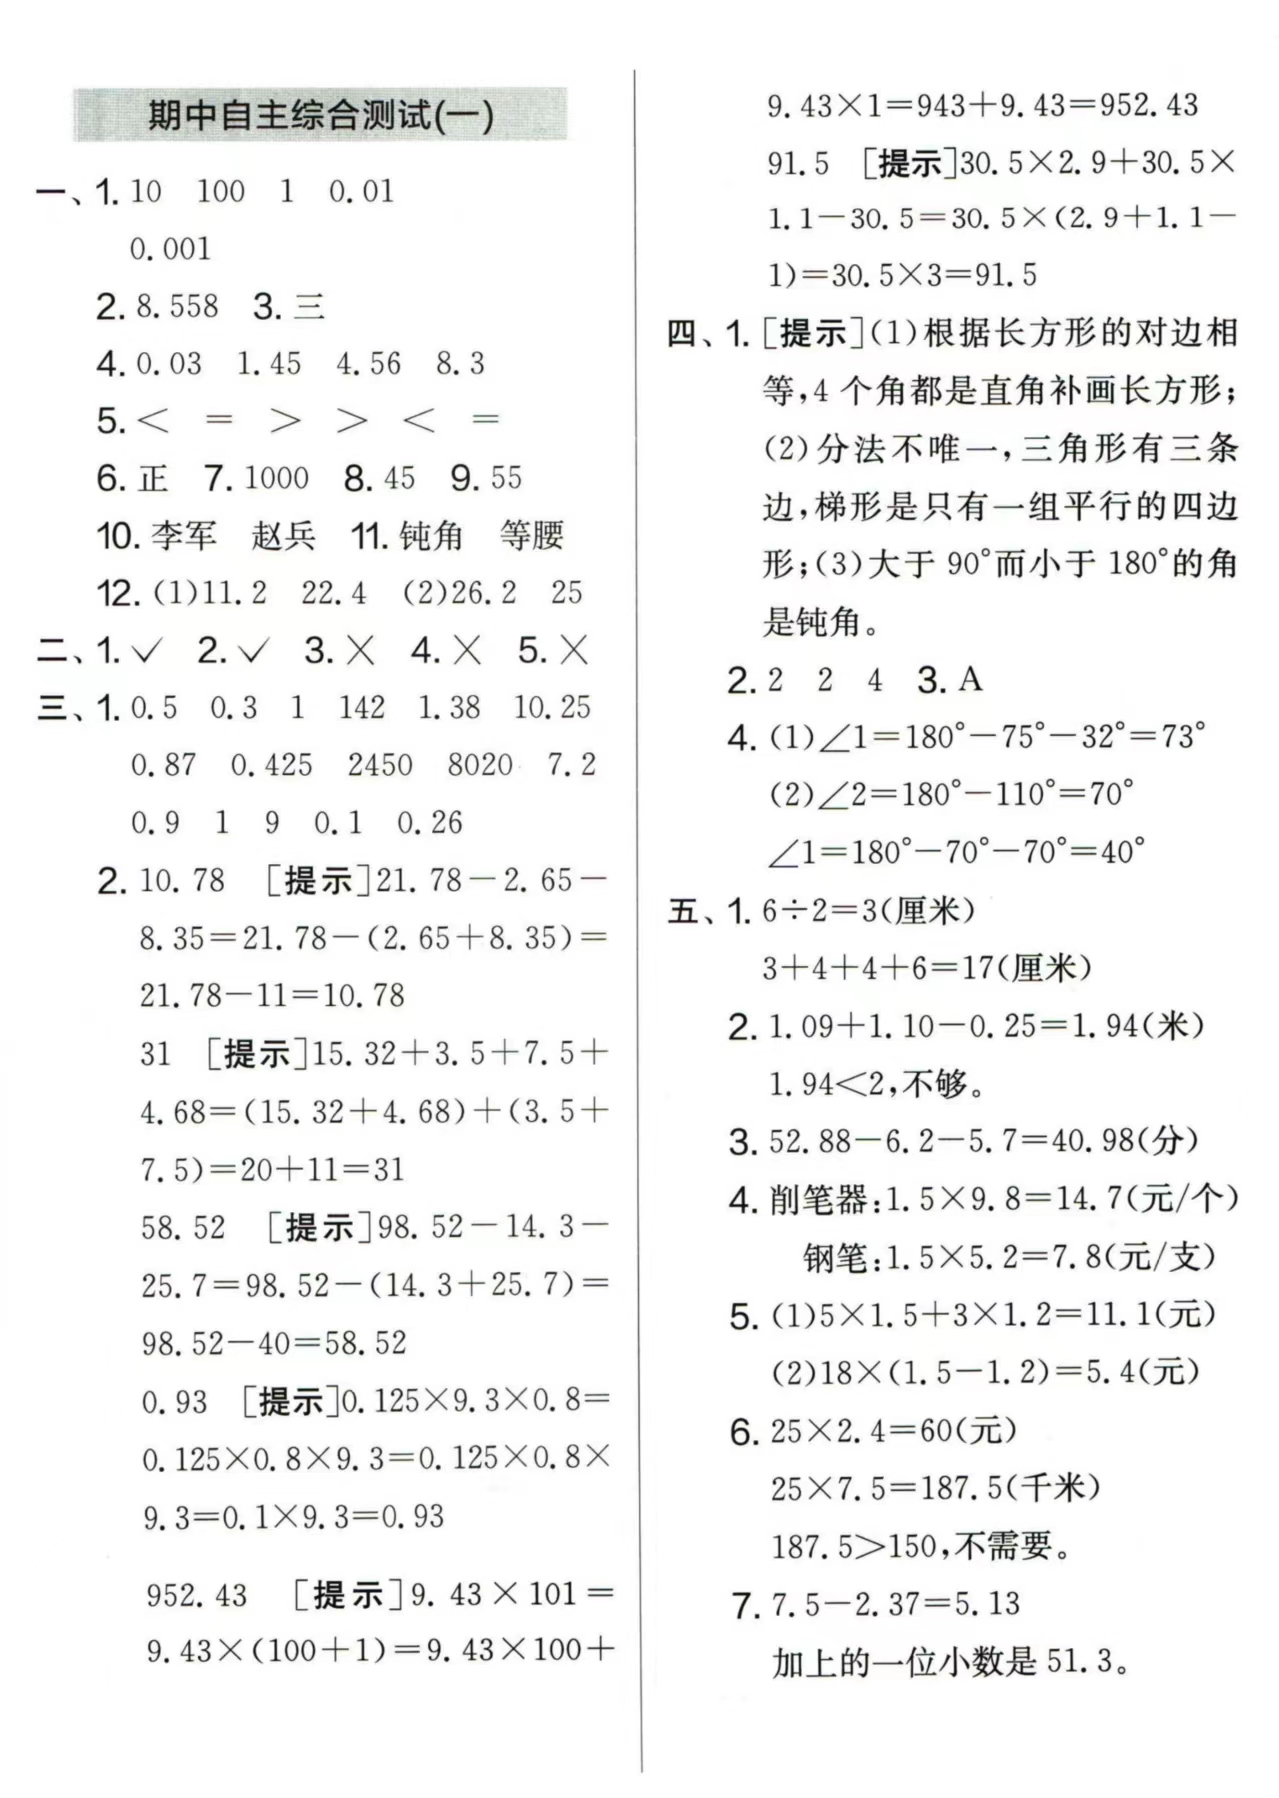 期中自主综合测试(一)
一、1. 10 100 1 0.01
0.001
2. 8.558 3. 三
4. 0.03 1.45 4.56 8.3
5. < = > > < =
6. 正 7. 1000 8. 45 9. 55
10. 李军 赵兵 11. 钝角 等腰
12. (1)11.2 22.4 (2)26.2 25
二、1. ✓ 2. ✓ 3. × 4. × 5. ×
三、1. 0.5 0.3 1 142 1.38 10.25
0.87 0.425 2450 8020 7.2
0.9 1 9 0.1 0.26
2. 10.78 [提示]21.78-2.65-
8.35=21.78-(2.65+8.35)=
21.78-11=10.78
31 [提示]15.32+3.5+7.5+
4.68=(15.32+4.68)+(3.5+
7.5)=20+11=31
58.52 [提示]98.52-14.3-
25.7=98.52-(14.3+25.7)=
98.52-40=58.52
0.93 [提示]0.125×9.3×0.8=
0.125×0.8×9.3=0.125×0.8×
9.3=0.1×9.3=0.93
952.43 [提示]9.43×101=
9.43×(100+1)=9.43×100+
9.43×1=943+9.43=952.43
91.5 [提示]30.5×2.9+30.5×
1.1-30.5=30.5×(2.9+1.1-
1)=30.5×3=91.5
四、1. [提示](1)根据长方形的对边相
等,4个角都是直角补画长方形;
(2)分法不唯一,三角形有三条
边,梯形是只有一组平行的四边
形;(3)大于90°而小于180°的角
是钝角。
2. 2 2 4 3. A
4. (1)∠1=180°-75°-32°=73°
(2)∠2=180°-110°=70°
∠1=180°-70°-70°=40°
五、1. 6÷2=3(厘米)
3+4+4+6=17(厘米)
2. 1.09+1.10-0.25=1.94(米)
1.94<2,不够。
3. 52.88-6.2-5.7=40.98(分)
4. 削笔器:1.5×9.8=14.7(元/个)
钢笔:1.5×5.2=7.8(元/支)
5. (1)5×1.5+3×1.2=11.1(元)
(2)18×(1.5-1.2)=5.4(元)
6. 25×2.4=60(元)
25×7.5=187.5(千米)
187.5>150,不需要。
7. 7.5-2.37=5.13
加上的一位小数是51.3。